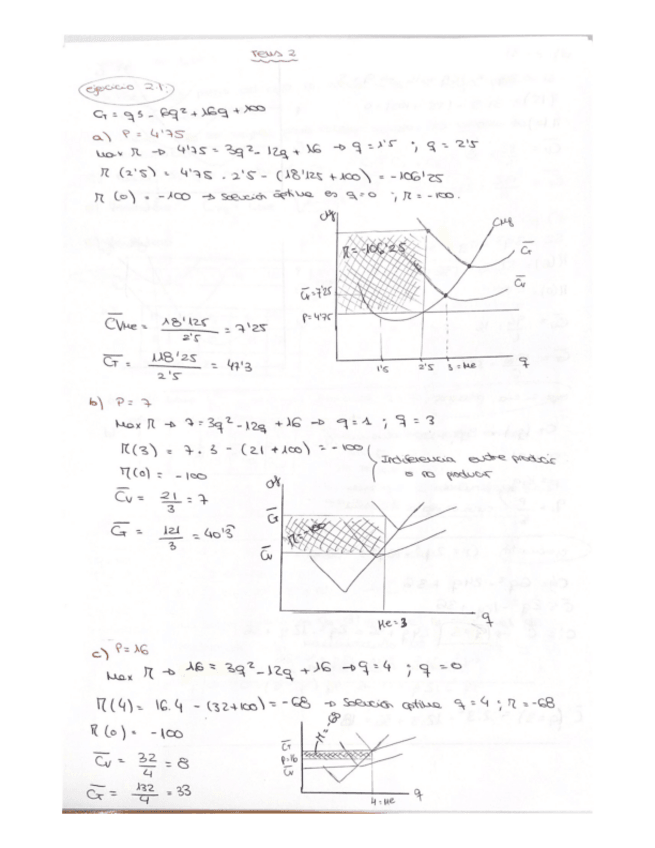 TEMA 2
ejercicio 2.1:
CT = q3 - 6q² + 16q + 100
a) P = 4'75
Max π → 4'75 = 3q² - 12q + 16 → q = 1'5 ; q = 2'5
π (2'5) = 4'75 · 2'5 - (18'125 + 100) = -106'25
π (0) = -100 → solución óptima es q=0 ; π = -100.
CMg
CT
π = -106'25
CV
CV=7'25
P=4'75
1'5 2'5 3 = Me q
CVMe = 18'125 / 2'5 = 7'25
CT = 118'25 / 2'5 = 47'3
b) P = 7
Max π → 7 = 3q² - 12q + 16 → q = 1 ; q = 3
π(3) = 7 · 3 - (21 + 100) = -100
Indiferencia entre producir
o no producir
π(0) = -100
CV = 21/3 = 7
CT = 121/3 = 40'3
CT
π = -100
CV
Me = 3 q
c) P = 16
Max π → 16 = 3q² - 12q + 16 → q = 4 ; q = 0
π(4) = 16.4 - (32+100) = -68 → solución óptima q = 4 ; π = -68
π(0) = -100
π = -68
CT
P=16
CV
4 = Me q
CV = 32/4 = 8
CT = 132/4 = 33